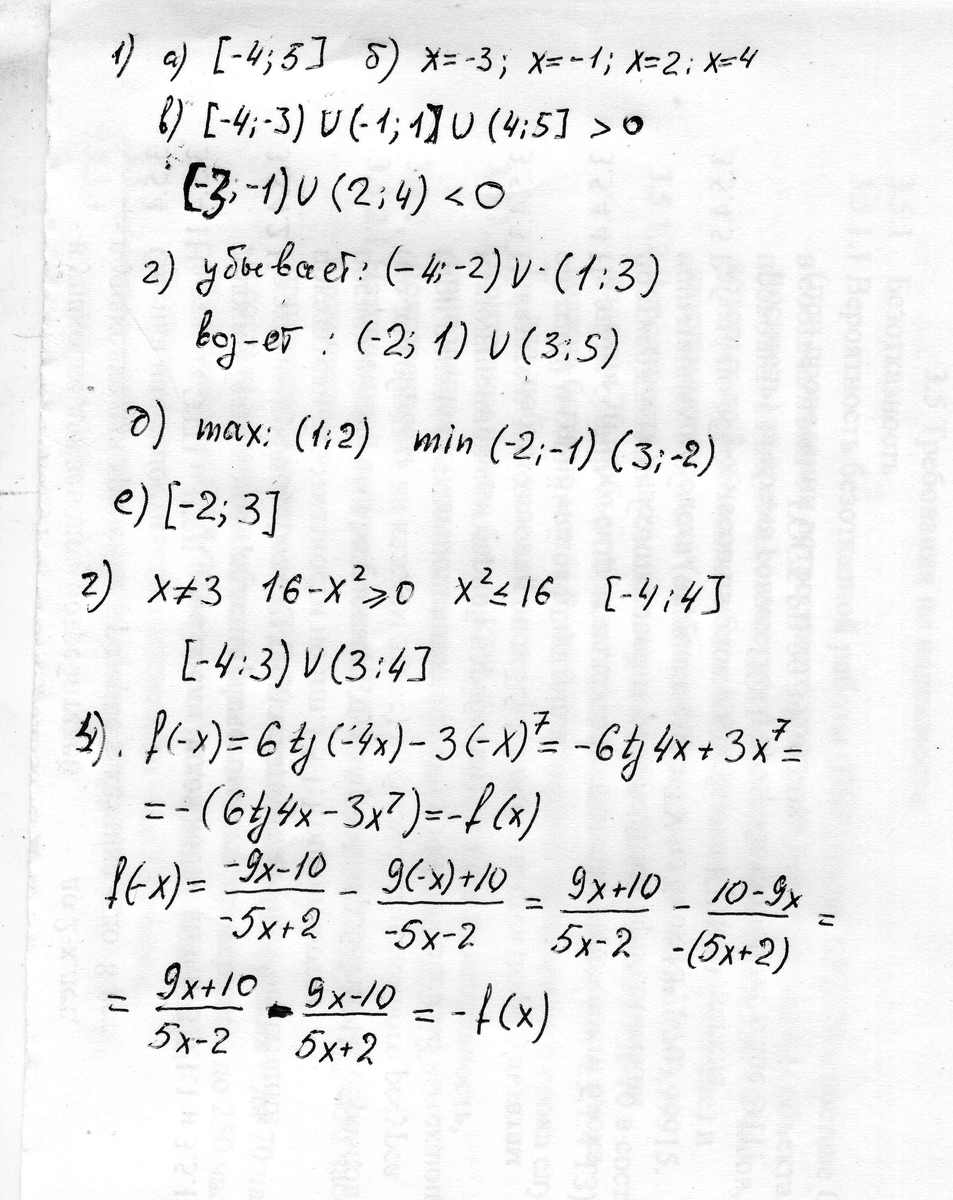 1) а) [-4; 5] б) x=-3; x=-1; x=2; x=4
в) [-4;-3) ∪ (-1; 1) ∪ (4;5] > 0
(-3; -1) ∪ (2; 4) < 0
г) убывает: (-4;-2) ∪ (1;3)
воз-ет : (-2; 1) ∪ (3;5)
д) max: (1;2) min (-2;-1) (3;-2)
е) [-2; 3]
2) x≠3 16-x²⩾0 x²≤16 [-4;4]
[-4;3) ∪ (3;4]
3). f(-x)=6tg(-4x)-3(-x)⁷=-6tg4x+3x⁷=
=-(6tg4x-3x⁷)=-f(x)
f(-x)= (-9x-10)/(-5x+2) - (9(-x)+10)/(-5x-2) = (9x+10)/(5x-2) - (10-9x)/(-(5x+2)) =
= (9x+10)/(5x-2) - (9x-10)/(5x+2) = -f(x)